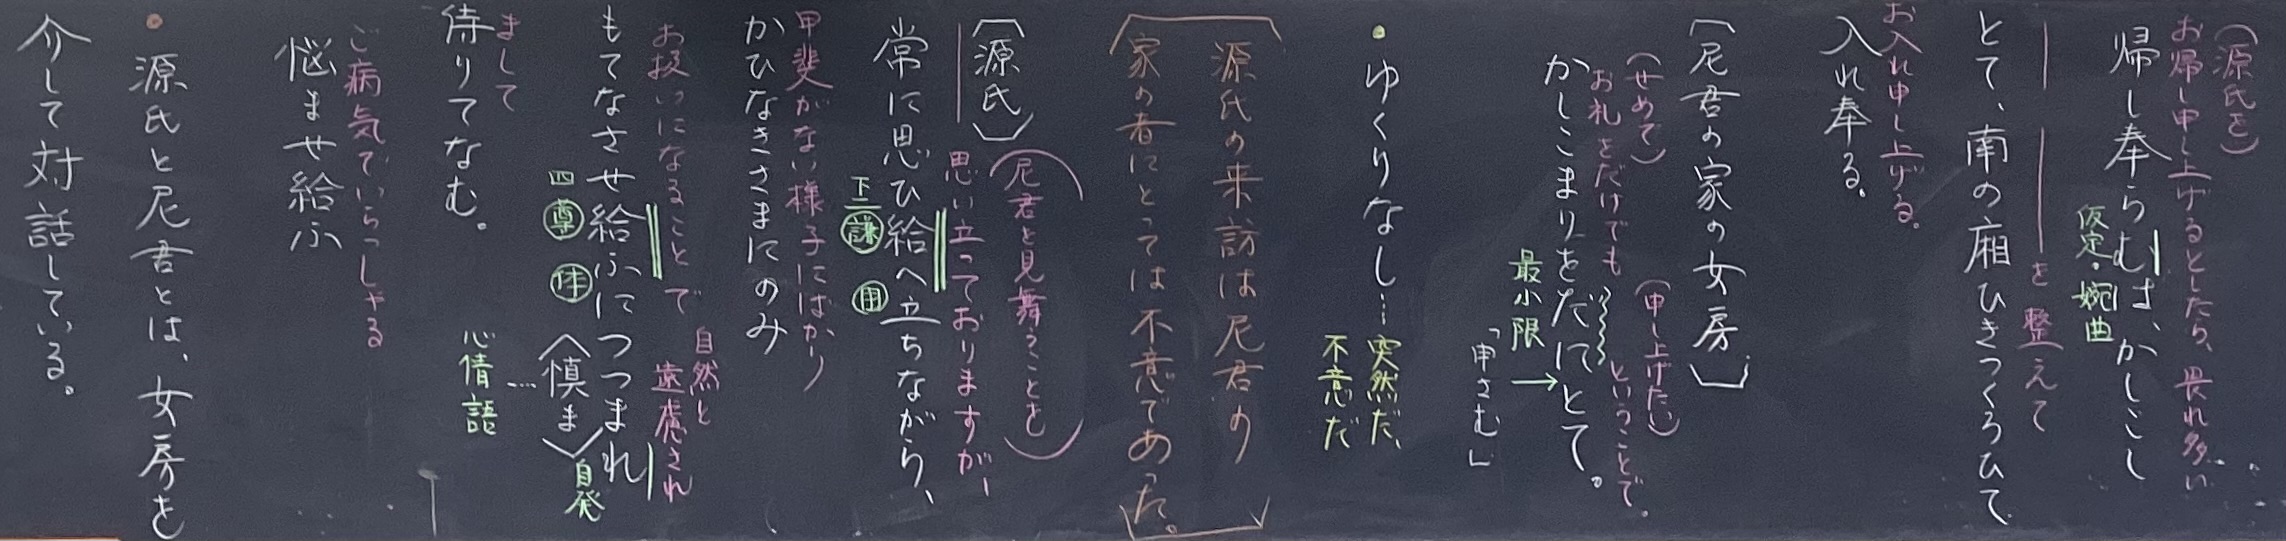 （源氏を）
お帰し申し上げるとしたら、畏れ多い
帰し奉らむは、かしこし
仮定・婉曲
を整えて
とて、南の廂ひきつくろひて
お入れ申し上げる。
入れ奉る。
〔尼君の家の女房〕
（せめて）（申し上げたい）
お礼をだけでもということで。
かしこまりをだにとて。
最小限→「申さむ」
・ゆくりなし…突然だ、
不意だ
源氏の来訪は尼君の
家の者にとっては不意であった。
〔源氏〕
（尼君を見舞うことを）
思い立っておりますが、
常に思ひ給へ立ちながら、
下二謙用
甲斐がない様子にばかり
かひなきさまにのみ
お扱いになることで自然と遠慮され
もてなさせ給ふにつつまれ
四尊体〈慎ま〉自発
…心情語
まして
待りてなむ。
ご病気でいらっしゃる
悩ませ給ふ
・源氏と尼君とは、女房を
介して対話している。